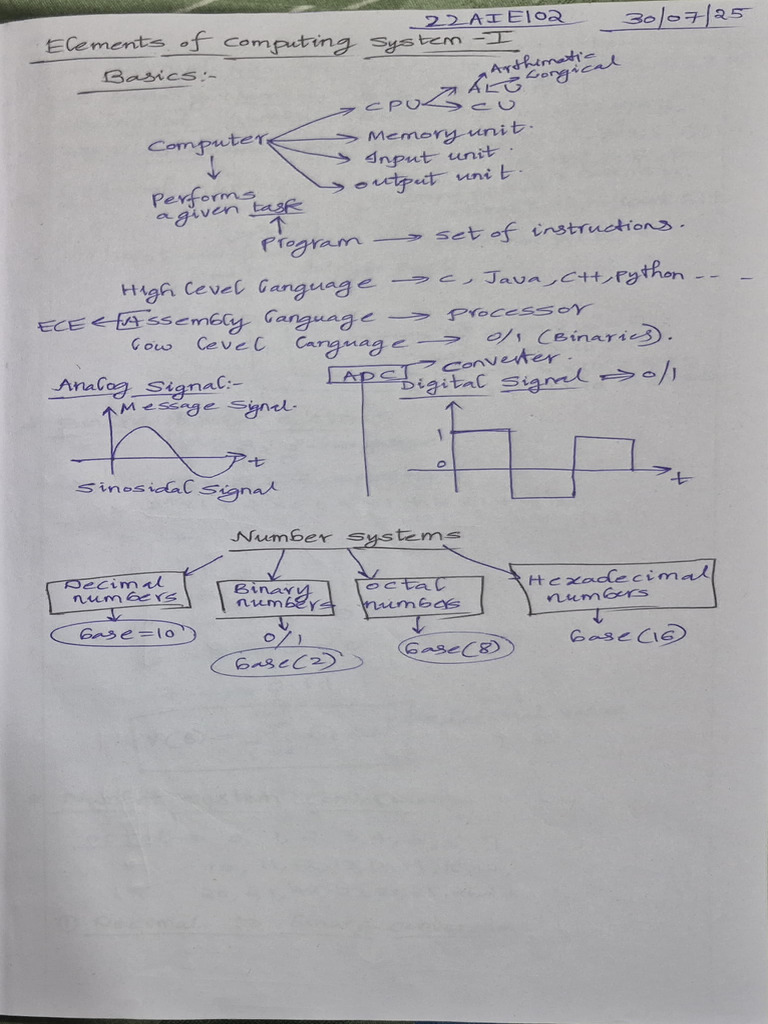 22AIE102 30/07/25
Elements of computing system - I
Basics:-
Arthematic
Longical
ALU
CPU
CU
Computer
Memory unit.
Input unit.
output unit.
Performs
a given task
Program → set of instructions.
High Level Language → C, Java, C++, Python ---
ECE ← Assembly Language → processor
Low Level Language → 0/1 (Binaries).
ADC → converter.
Analog Signal:-
Digital Signal ⇒ 0/1
Message Signal.
1
0
t
t
Sinosidal Signal
Number systems
Decimal numbers
Binary numbers
octal numbers
Hexadecimal numbers
base=10
0/1
base(2)
base(8)
base(16)